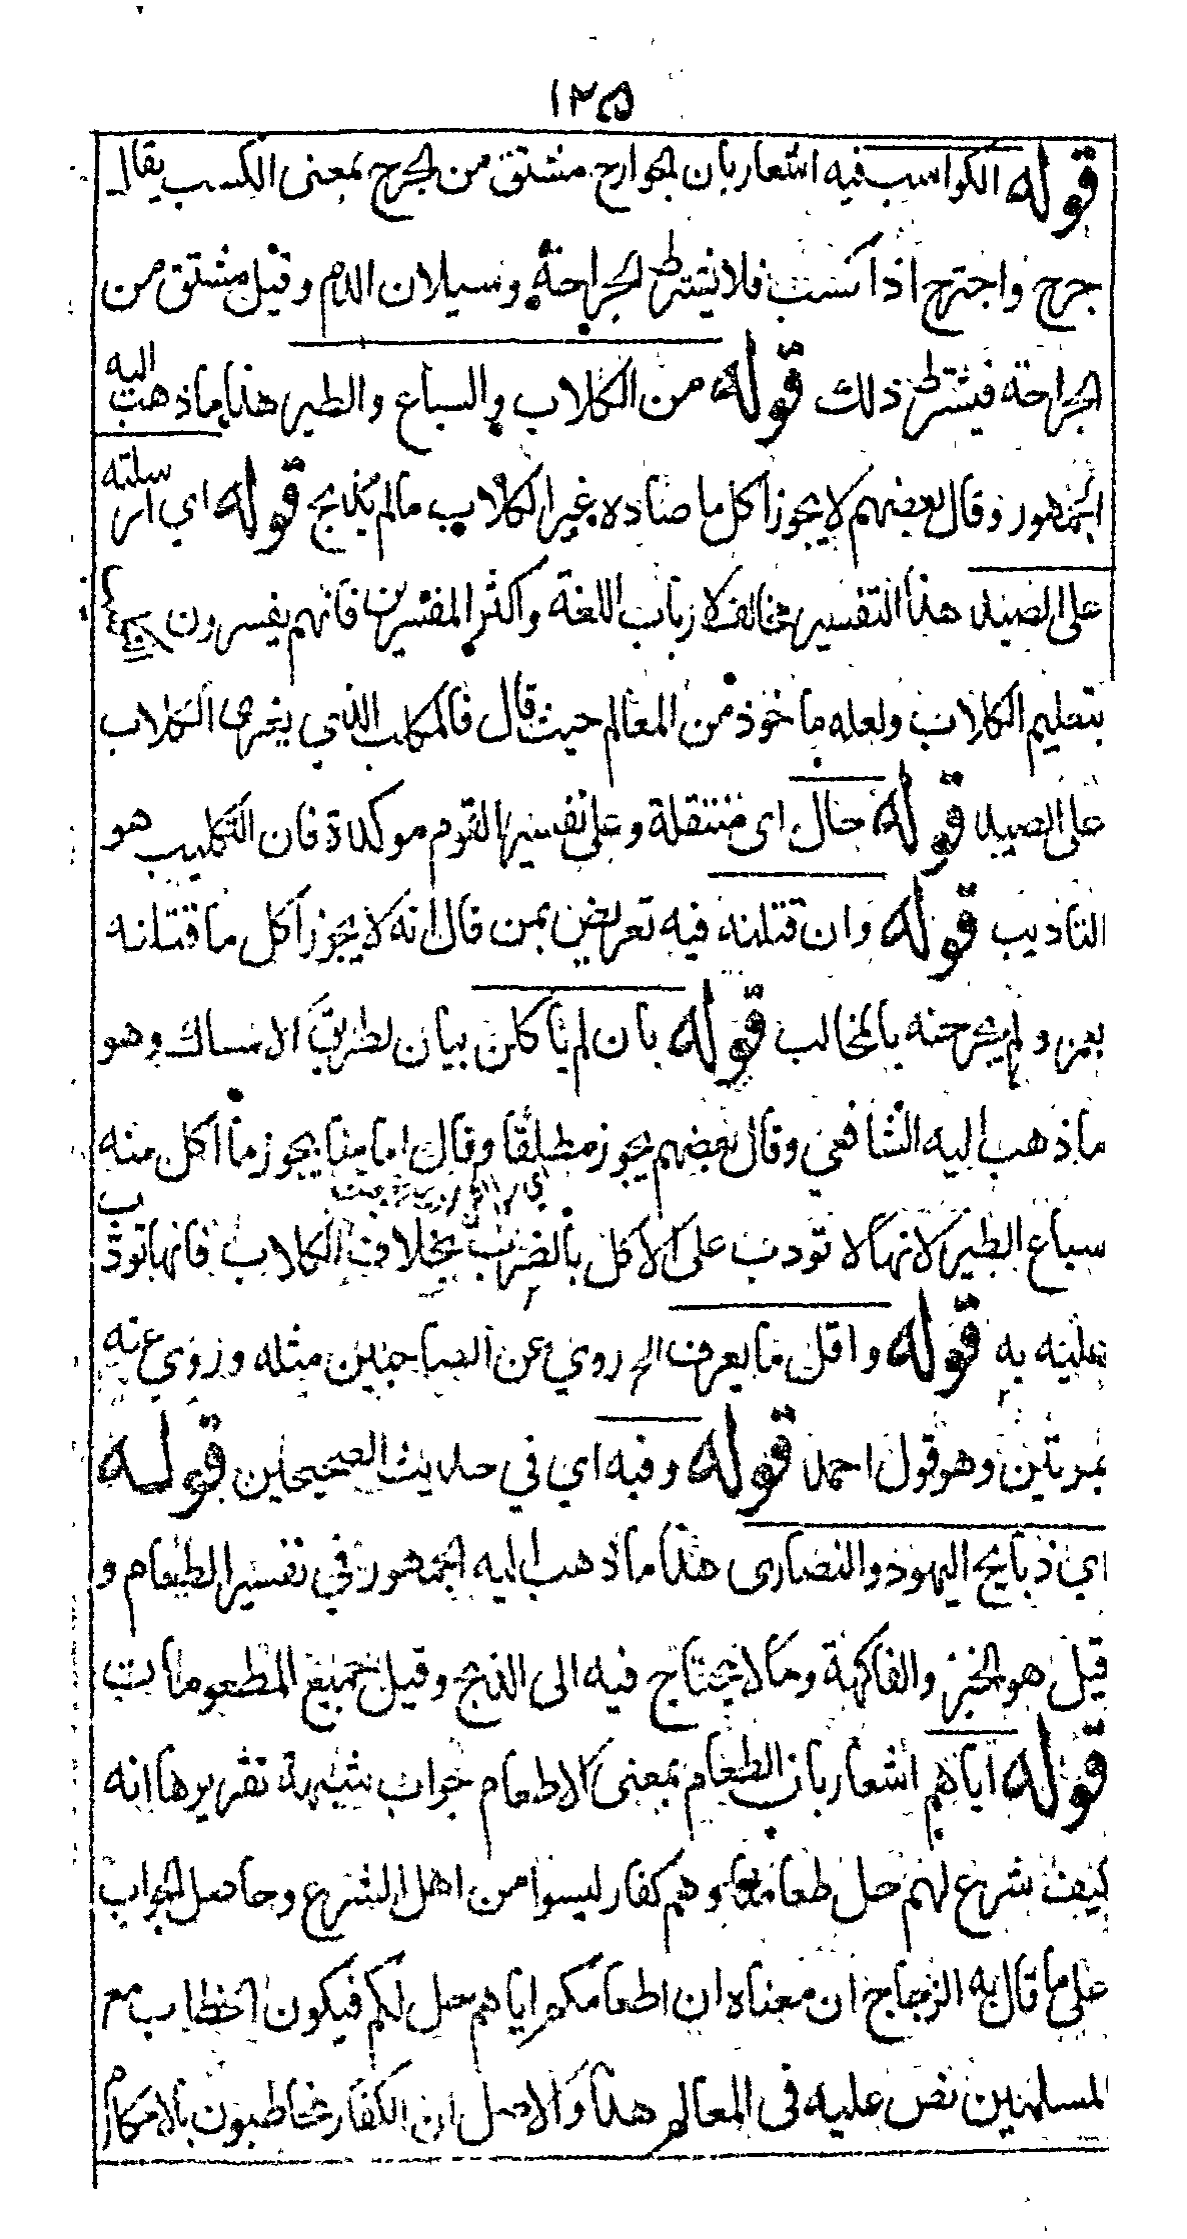 ١٢٥
قوله الكواسب فيه اشعار بان الجوارح مشتق من الجرح بمعنى الكسب يقال
جرح واجترح اذا كسب فلا يشترط الجراحة وسيلان الدم وقيل مشتق من
الجراحة فيشترط ذلك قوله من الكلاب والسباع والطير هذا ما ذهب اليه
الجمهور وقال بعضهم لا يجوز اكل ما صاده بغير الكلاب مالم يذبح قوله اي ارسلته
على الصيد هذا التفسير مخالف لارباب اللغة واكثر المفسرين فانهم يفسرون
بتعليم الكلاب ولعله ماخوذ من المعالم حيث قال فالمكلب الذي يغرى الكلاب
على الصيد قوله حال اى منتقلة وعلى تفسير القوم موكدة فان التكليب هو
التاديب قوله وان قتلنه فيه تعريض بمن قال انه لا يجوز اكل ما قتلنه
بغمن ولم يجرحنه بالمخالب قوله بان لم ياكلن بيان لطريق الامساك وهو
ما ذهب اليه الشافعي وقال بعضهم يجوز مطلقا وقال امامنا يجوز ما اكل منه
سباع الطير لانها لا تودب على الاكل بالضرب بخلاف الكلاب فانها تودب
عليه به قوله واقل ما يعرف الخ روي عن الصاحبين مثله وروي عنه
بمرتين وهو قول احمد قوله وفيه اي في حديث الصحيحين قوله
اي ذبايح اليهود والنصارى هذا ما ذهب اليه الجمهور في تفسير الطعام و
قيل هو الخبز والفاكهة وما لا يحتاج فيه الى الذبح وقيل جميع المطعومات
قوله اياهم اشعار بان الطعام بمعنى الاطعام جواب شبهة تقريرها انه
كيف شرع لهم حل طعامنا وهم كفار ليسوا من اهل الشرع وحاصل الجواب
على ما قال به الزجاج ان معناه ان اطعامكم اياهم حل لكم فيكون الخطاب مع
المسلمين نص عليه فى المعالم هذا والاصل ان الكفار مخاطبون بالاحكام